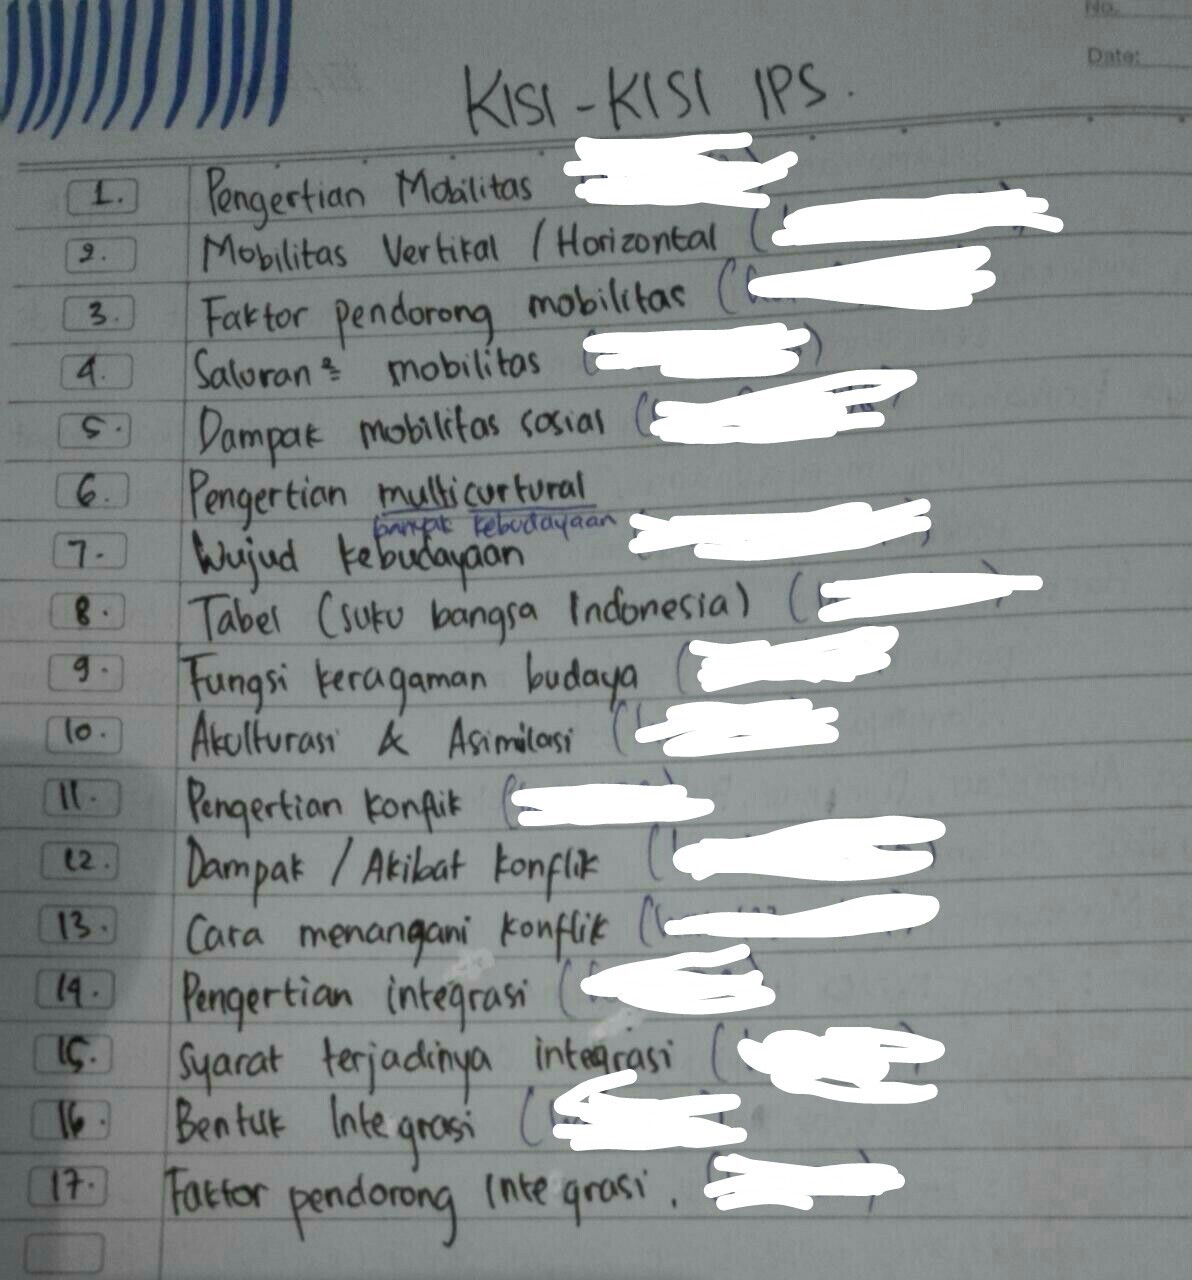 No.
Date:
KISI - KISI IPS.
1. Pengertian Mobilitas
2. Mobilitas Vertikal / Horizontal (
3. Faktor pendorong mobilitas (
4. Saluran² mobilitas ( )
5. Dampak mobilitas sosial (
6. Pengertian multicurtural
banyak kebudayaan
7. Wujud kebudayaan
8. Tabel (suku bangsa Indonesia) (
9. Fungsi keragaman budaya (
10. Akulturasi & Asimilasi (
11. Pengertian konflik (
12. Dampak / Akibat konflik (
13. Cara menangani konflik (
14. Pengertian integrasi (
15. Syarat terjadinya integrasi (
16. Bentuk Integrasi (
17. Faktor pendorong Integrasi.